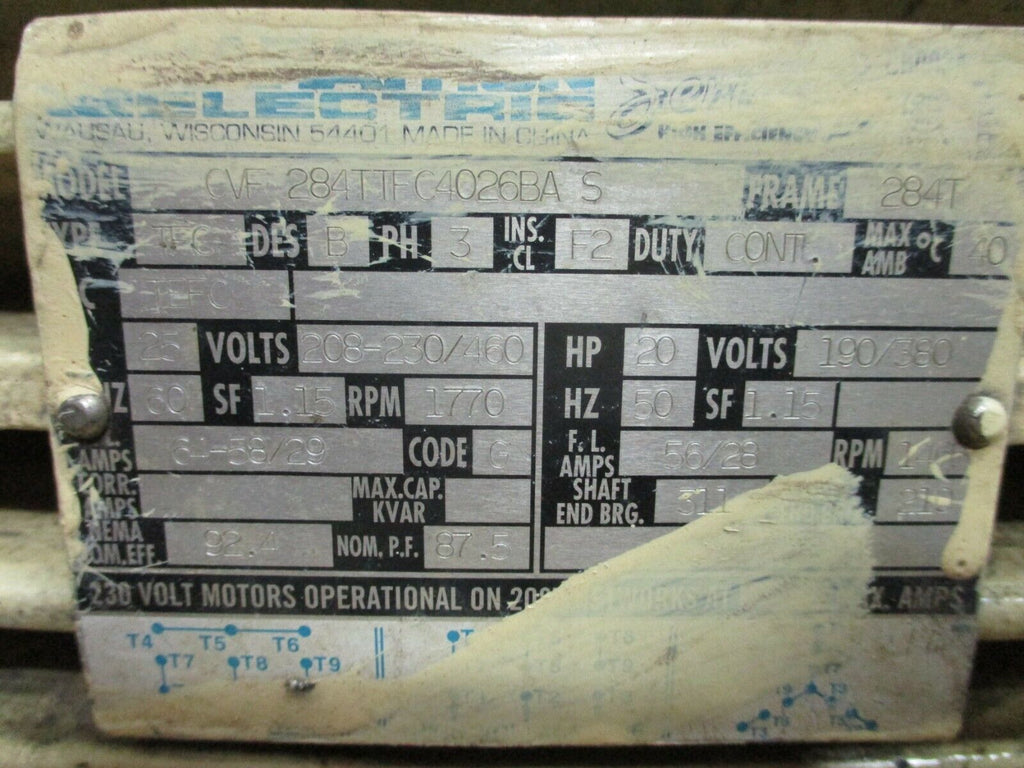 ELECTRIC
WAUSAU, WISCONSIN 54401 MADE IN CHINA
HIGH EFFICIENCY
MODEL CVF 284TTFC4026BA S FRAME 284T
TYPE TFC DES B PH 3 INS. CL F2 DUTY CONT. MAX AMB °C 40
TEFC
25 VOLTS 208-230/460 HP 20 VOLTS 190/380
HZ 60 SF 1.15 RPM 1770 HZ 50 SF 1.15
AMPS 58/29 CODE G F.L. AMPS 56/28 RPM
CORR. AMPS MAX.CAP. KVAR SHAFT END BRG. 311
NEMA NOM.EFF. 92.4 NOM. P.F. 87.5
230 VOLT MOTORS OPERATIONAL ON AMPS
T4 T5 T6
T7 T8 T9